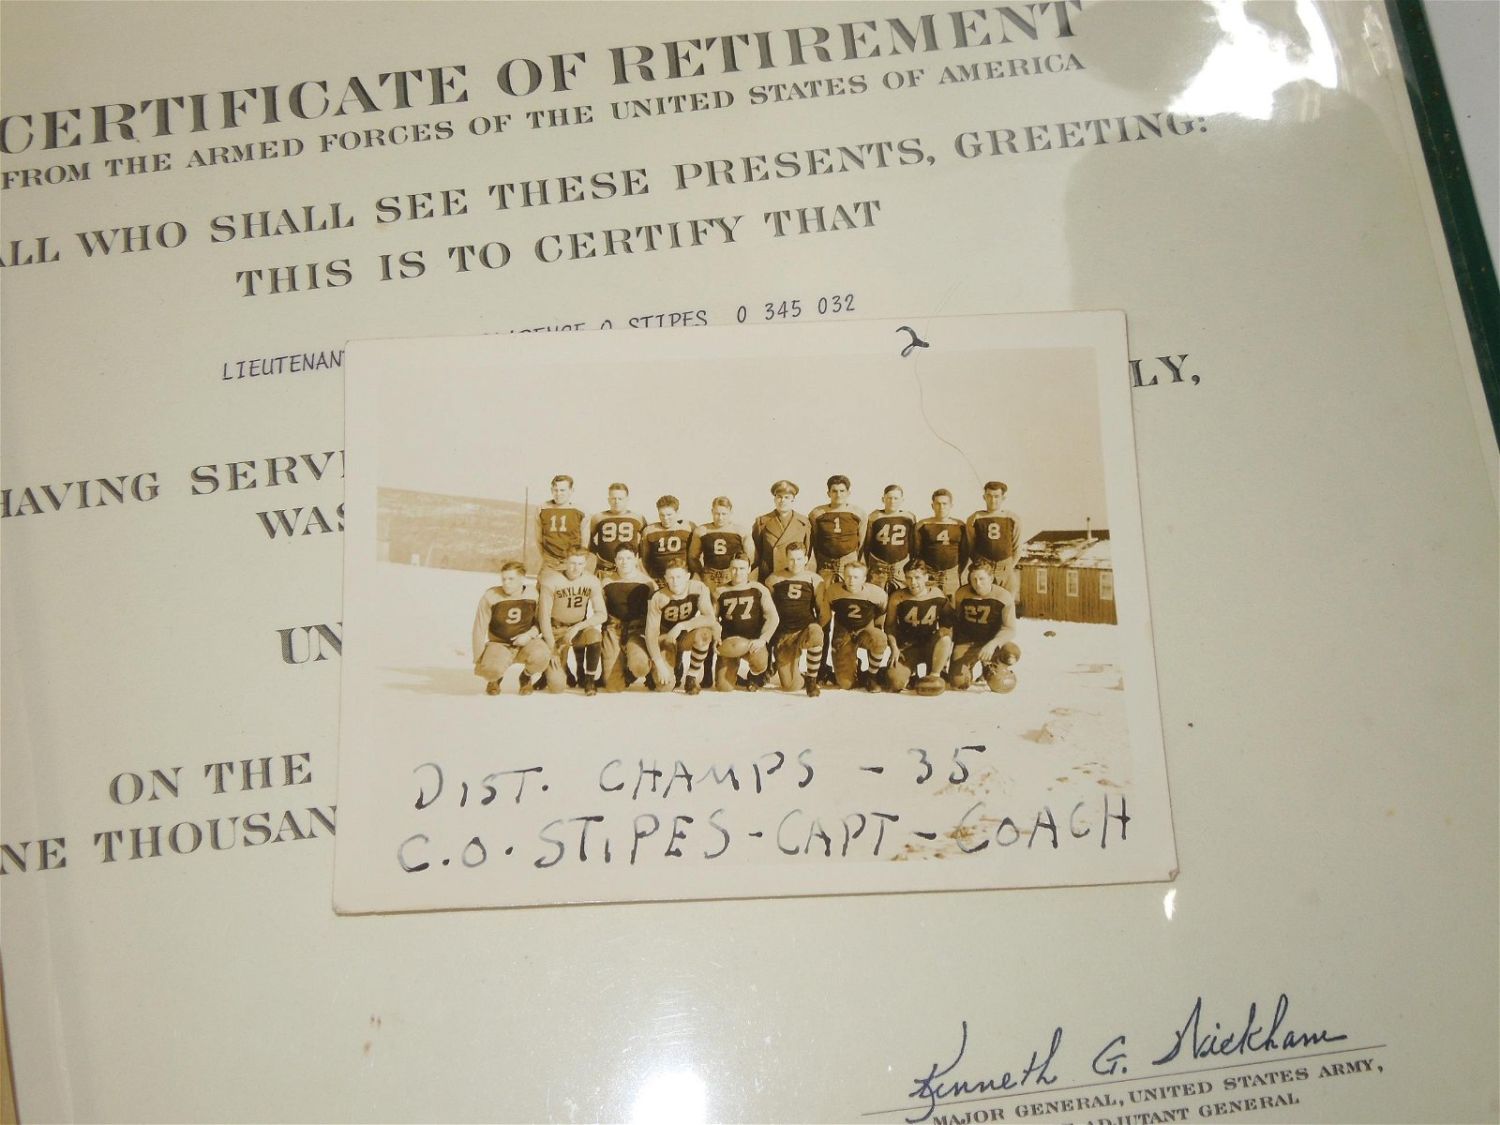 CERTIFICATE OF RETIREMENT
FROM THE ARMED FORCES OF THE UNITED STATES OF AMERICA
ALL WHO SHALL SEE THESE PRESENTS, GREETING:
THIS IS TO CERTIFY THAT
LIEUTENANT O STIPES O 345 032
LY,
HAVING SERV
WAS
UN
ON THE
NE THOUSAN
2
11 99 10 6 1 42 4 8
9 SKYLAND 12 88 77 5 2 44 27
DIST. CHAMPS - 35
C.O. STIPES - CAPT - COACH
Kenneth G. Wickham
MAJOR GENERAL, UNITED STATES ARMY,
ADJUTANT GENERAL